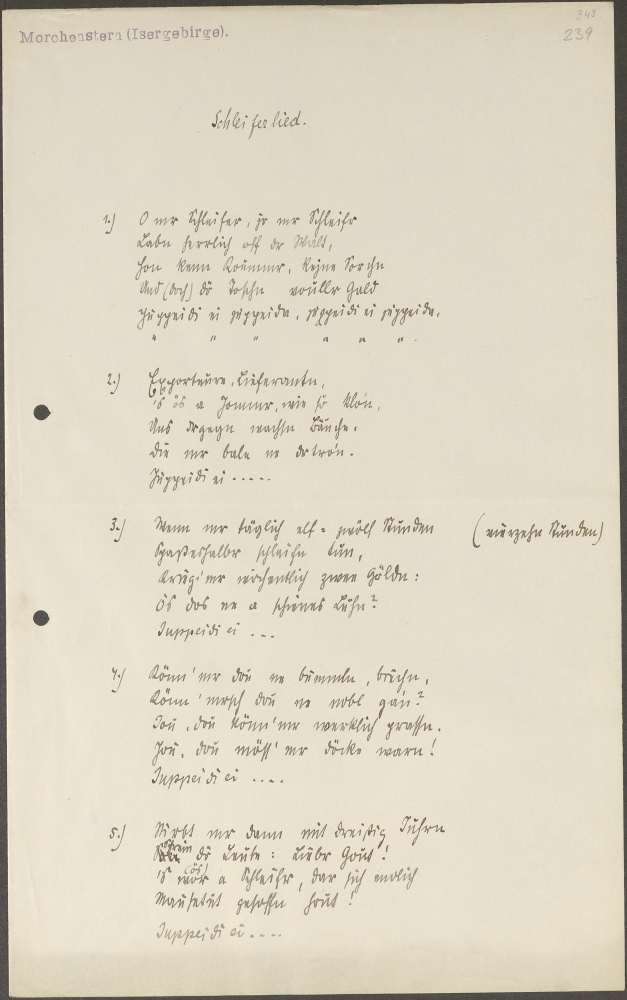 343
239
Morchenstern (Isergebirge).
Schleiferlied.
1.) O mr Schleifer, jo mr Schleifr
Labn herrlich off dr Walt,
Hon kenn Koummr, keine Sorchn
Und (doch) di Toschn voullr Gald
Juppeidi ei juppeida, juppeidi ei juppeida.
" " " " " "
2.) Exporteure, Lieferantn,
's is a Jommr, wie se klon,
Uns drgegn wachsn Bäuche,
Die mr bale ne drtron.
Juppeidi ei .....
3.) Wenn mr täglich elf - zwölf Stunden (vierzehn Stunden)
Spasseshalbr schleifn tun,
Kriegi mr wöchentlich zwee Göldn:
Is dos ne a schienes Luhn?
Juppeidi ei ...
4.) Könn' mr dou ne bummeln,
Könn' mrsch dou ne nobl gan?
Jou, dou könn' mr werklich prassn.
Jou, dou möss' mr döcke warn!
Juppeidi ei ....
5.) Stirbt mr dann mit dreissig Juhrn
di Leute: Liebr Gout!
's wor a Schleifr, dar sich endlich
Mausetut gesoffn hout!
Juppeidi ei ....